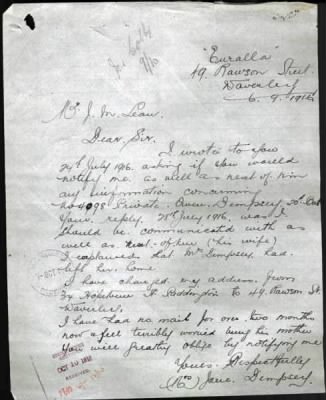 "Euralla"
49. Rawson Street.
Waverley
6. 9. 1916
Mr. J. M. Lean.
Dear Sir.
I wrote to you
24th July 1916. asking if you would
notify me as well as next of kin
any information concerning
No 4098 Private. Owen. Dempsey 20th
Your. reply. 28th July 1916. was I
should be. communicated with as
well as. next. of kin (his wife)
I explained that Mrs Dempsey. had
left her home.
I have changed my address. from
Hopetoun St Paddington to 49. Rawson St.
Waverley.
I have had no mail for over two months
now & feel terribly worried being his mother
You will greatly oblige by notifying me
Yours. Respectfully
(Mrs) Jane. Dempsey.
OCT 20 1916